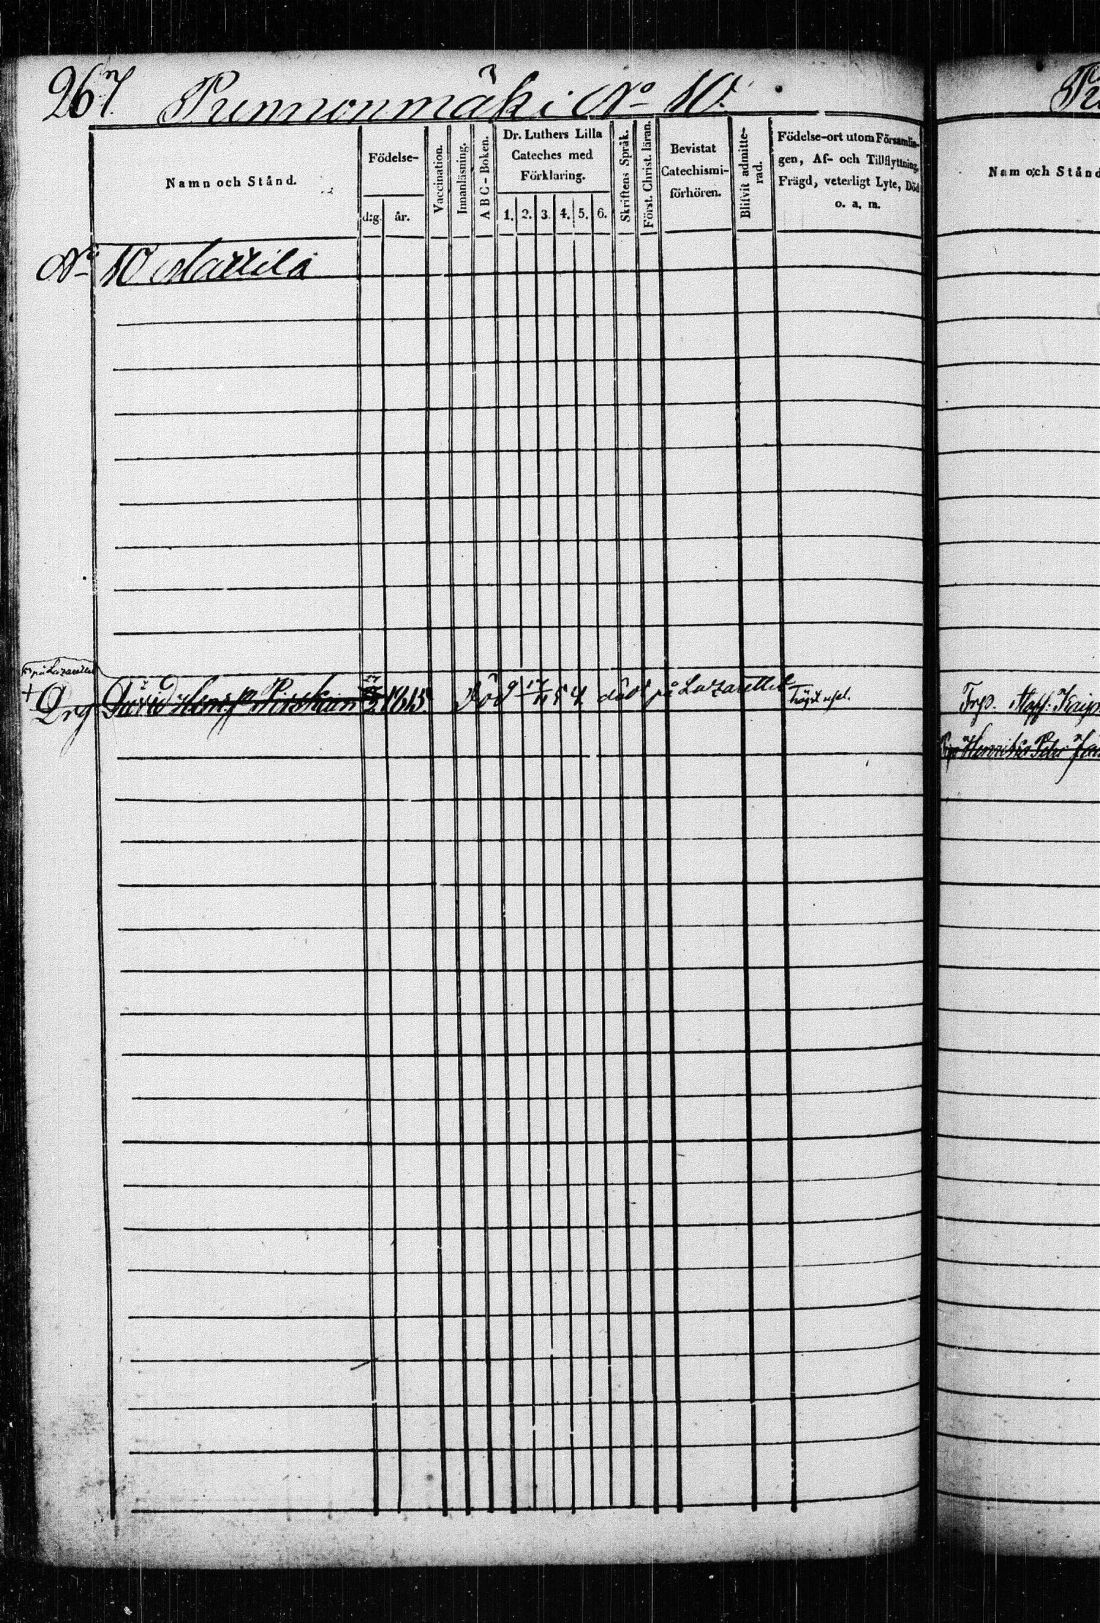 267 Punnonmäki No 10.
Namn och Stånd.
Födelse-
d:g. år.
Vaccination.
Innanläsning.
A B C - Boken.
Dr. Luthers Lilla
Cateches med
Förklaring.
1. 2. 3. 4. 5. 6.
Skriftens Språk.
Först. Christ. läran.
Bevistat
Catechismi-
förhören.
Blifvit admitte-
rad.
Födelse-ort utom Församlin-
gen, Af- och Tillflyttning,
Frägd, veterligt Lyte, Död
o. a. m.
No 10 Mattila
på Lazarettet
+
Drg David 1815. Död 54 död på Lazarettet
Namn och Stånd
Staff:
Petr